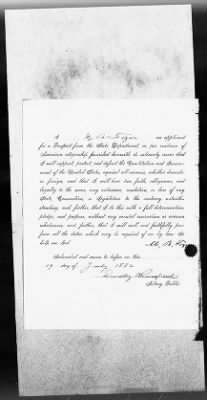 I, an applicant
for a Passport from the State Department, on my evidence of
American citizenship furnished herewith, do solemnly swear that
I will support, protect and defend the Constitution and Government
of the United States, against all enemies, whether domestic
or foreign, and that I will bear true faith, allegiance, and
loyalty to the same, any ordinance, resolution, or law of any
State, Convention, or Legislature to the contrary notwith-
standing, and further, that I do this with a full determination,
pledge, and purpose, without any mental reservation or evasion
whatsoever, and further, that I will well and faithfully per-
form all the duties which may be required of me by law. So
help me God.
Subscribed and sworn to before me this
day of July 1882
Notary Public